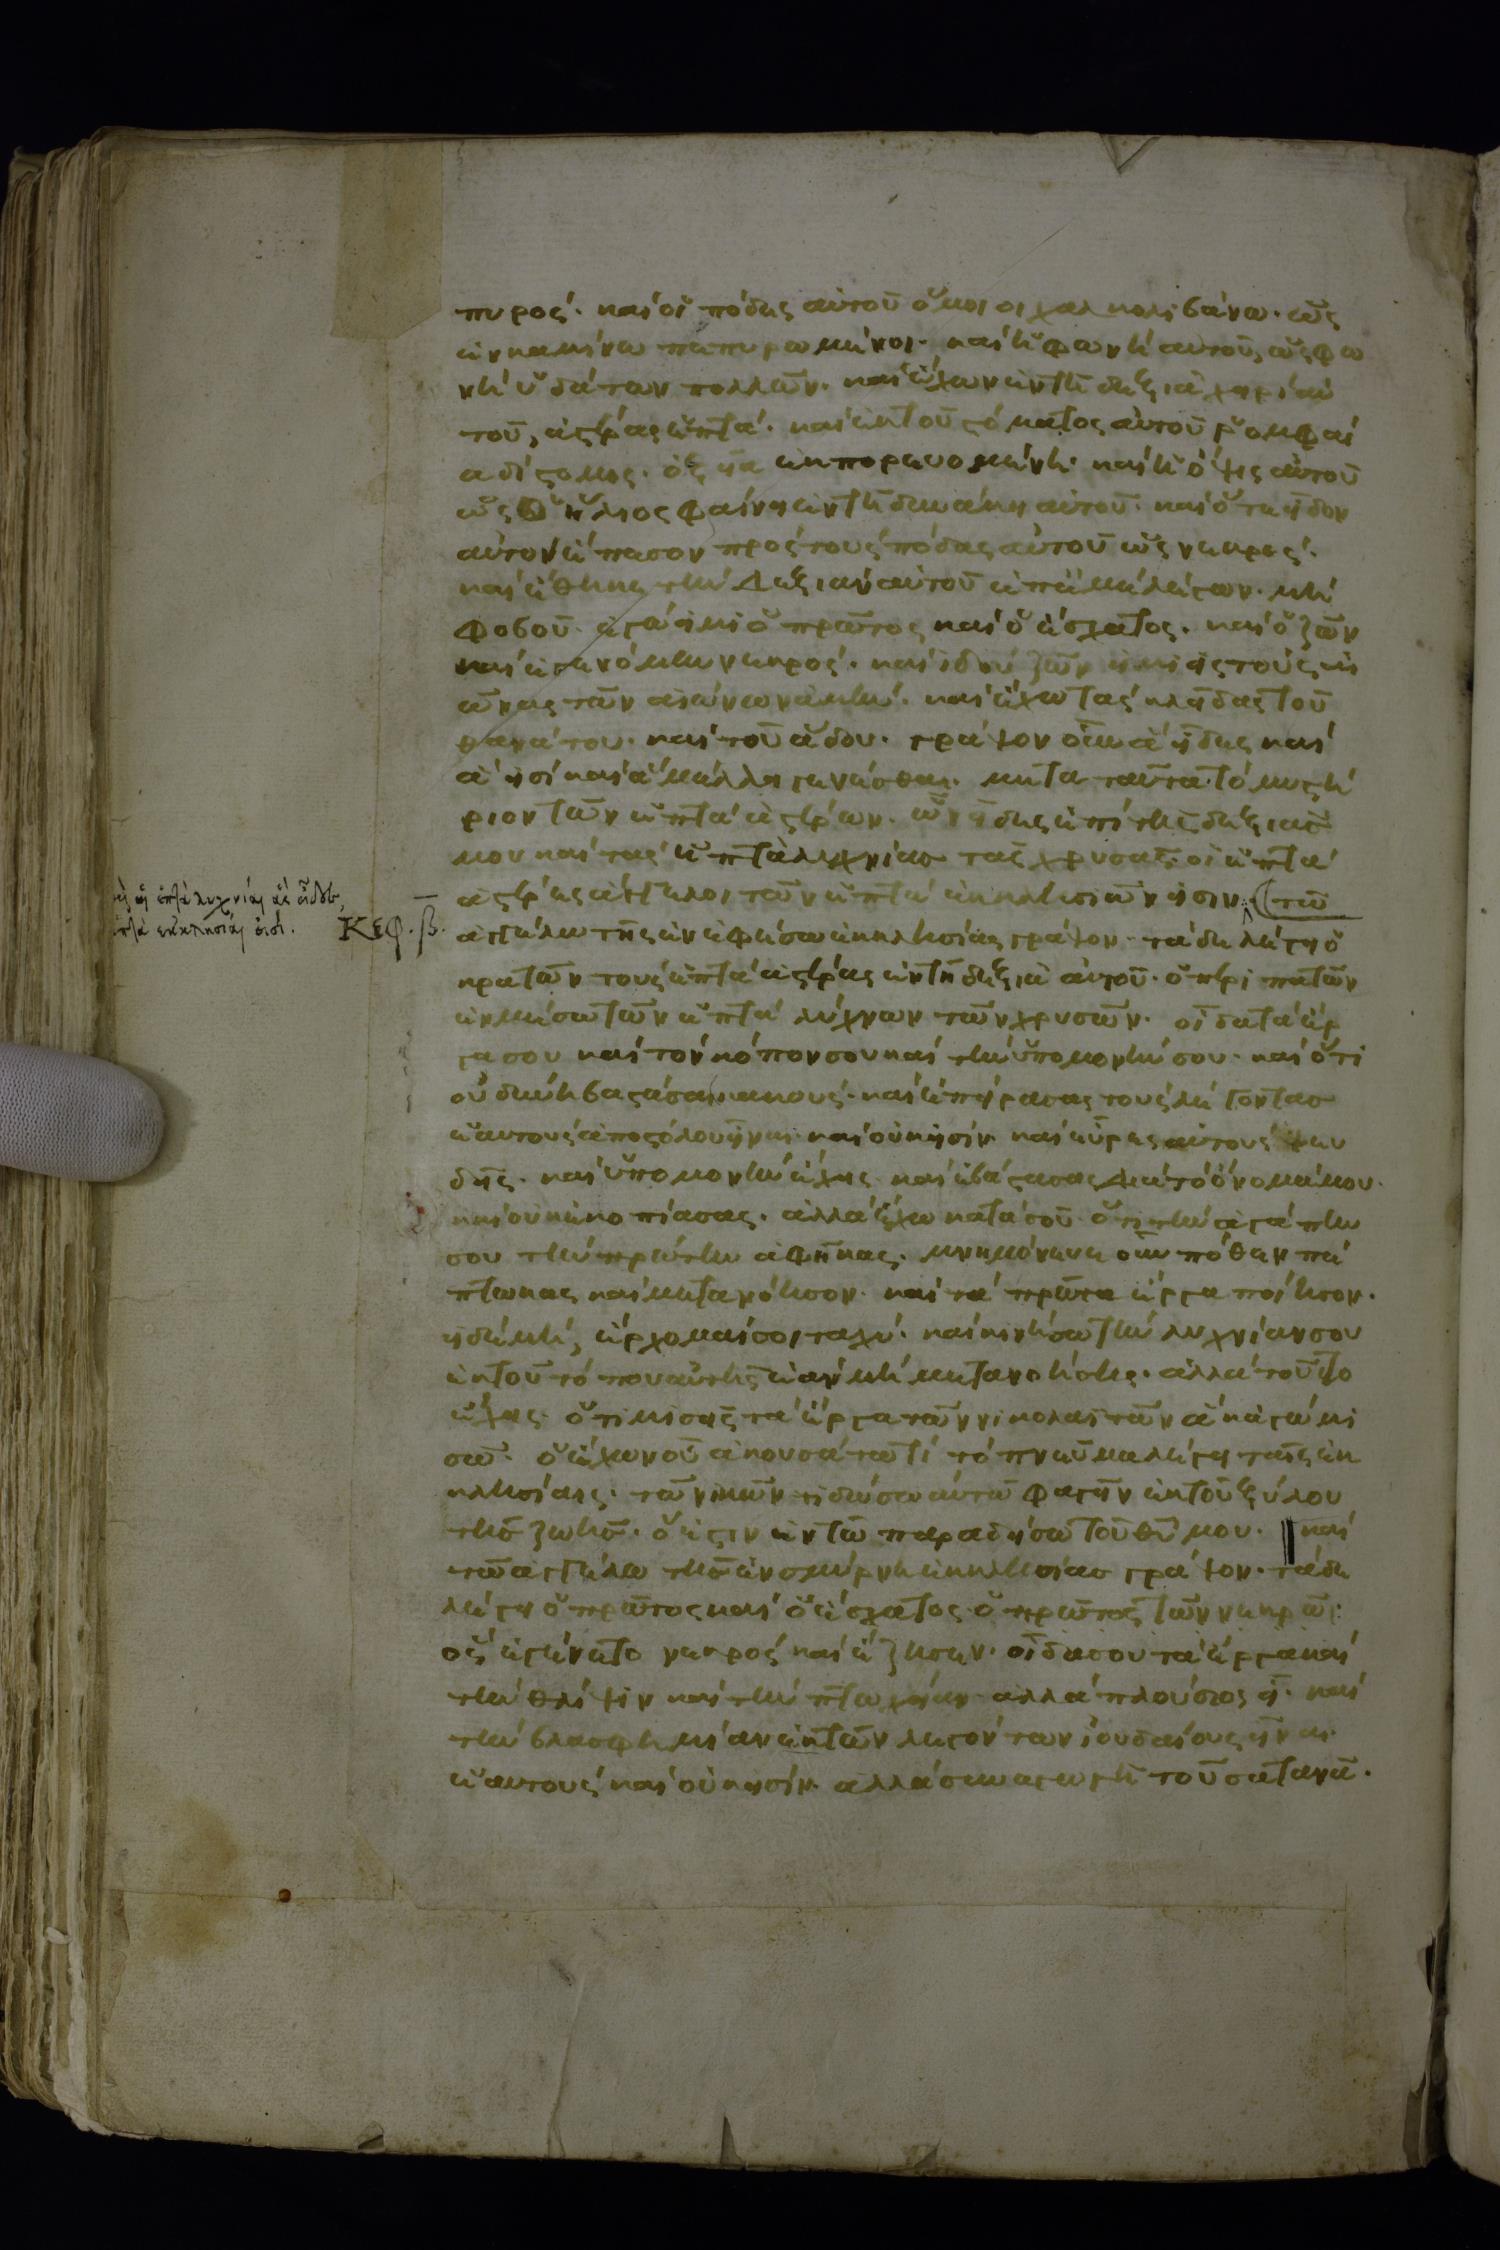 πυρος· και οι πόδες αυτου όμοιοι χαλκολιβάνω· ως
εν καμίνω πεπυρωμένοι· και η φωνή αυτου, ως φω
νή ὑδάτων πολλῶν· και έχων εν τη δεξιά χειρί αυ
τοῦ, αστέρας επτά· και εκ του στόματος αυτοῦ ῥομφαί
α δίστομος· οξεῖα εκπορευομένη· και η όψις αυτοῦ
ως ὁ ήλιος φαίνει εν τη δυνάμει αυτοῦ· και ότε εἶδον
αυτον έπεσον προς τους πόδας αυτοῦ ως νεκρος·
και έθηκε την δεξιαν αυτοῦ επ' εμε λέγων· μη
φοβοῦ· εγώ ειμι ὁ πρῶτος και ὁ έσχατος· και ὁ ζῶν
και εγενόμην νεκρος· και ιδου ζῶν ειμι εις τους αι
ῶνας τῶν αιώνων αμην· και έχω τας κλεῖδας τοῦ
θανάτου· και τοῦ άδου· γράψον οῦν ά εῖδες και
ά εισι και ά μέλλει γενέσθαι· μετα ταῦτα το μυστή
ριον τῶν επτα αστέρων· ὧν εῖδες επι τῆς δεξιᾶς
μου και τας επτα λυχνίας τας χρυσᾶς· οι επτα
αστέρες άγγελοι τῶν επτα εκκλησιῶν εισιν· τῶ
αγγέλω τῆς εν εφέσω εκκλησίας γράψον· τάδε λέγει ὁ
κρατῶν τους επτα αστέρας εν τη δεξιά αυτοῦ· ὁ περιπατῶν
εν μέσω τῶν επτα λύχνων τῶν χρυσῶν· οῖδα τα έρ
γα σου και τον κόπον σου και την υπομονήν σου· και ότι
ου δυνη βαστάσαι κακους· και επείρασας τους λέγοντας
εαυτους αποστόλους εῖναι και ουκ εισίν· και εῦρες αυτους ψευ
δῆς· και υπομονην έχεις και εβάστασας δια το όνομά μου·
και ου κεκοπίασας· αλλα έχω κατα σοῦ ότι την αγάπην
σου την πρώτην αφῆκας· μνημόνευε οῦν πόθεν πέ
πτωκας και μετανόησον· και τα πρῶτα έργα ποίησον·
ει δε μη, έρχομαί σοι ταχύ· και κινήσω την λυχνίαν σου
εκ τοῦ τόπου αυτῆς εαν μη μετανοήσης· αλλα τοῦτο
έχεις· ότι μισεῖς τα έργα τῶν νικολαϊτῶν ά καγω μι
σῶ· ὁ έχων οῦς ακουσάτω τί το πνεῦμα λέγει ταῖς εκ
κλησίαις· τῶ νικῶντι δώσω αυτῶ φαγεῖν εκ τοῦ ξύλου
τῆς ζωῆς· ό εστιν εν τῶ παραδείσω τοῦ θῦ μου· και
τῶ αγγέλω τῆς εν σμύρνη εκκλησίας γράψον· τάδε
λέγει ὁ πρῶτος και ὁ έσχατος· ὁ πρῶτος τῶν νεκρῶν:
ός εγένετο νεκρος και έζησεν· οῖδα σου τα έργα και
την θλίψιν και την πτωχείαν αλλα πλούσιος εῖ· και
την βλασφημίαν εκ τῶν λεγόντων ιουδαίους εῖναι
εαυτους και ουκ εισίν· αλλα συναγωγη τοῦ σατανᾶ·
αἱ ἑπτὰ λυχνίαι ἃς εἶδες,
ἑπτὰ ἐκκλησίαι εἰσί.
Κεφ. β.